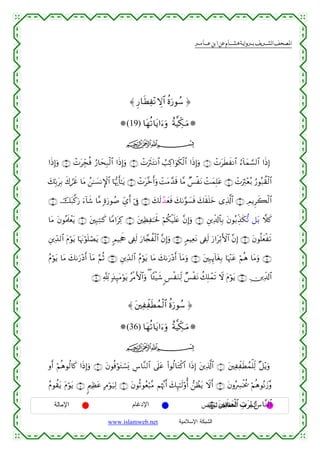 المصحف الشريف برواية هشام عن ابن عامر
﴿ سُورَةُ ٱلِانفِطَارِ ﴾
*مَكِّيَّةٌ وَءَايَاتُهَا (19)*
بِسْمِ ٱللَّهِ ٱلرَّحْمَٰنِ ٱلرَّحِيمِ
إِذَا ٱلسَّمَآءُ ٱنفَطَرَتْ ۝ وَإِذَا ٱلْكَوَاكِبُ ٱنتَثَرَتْ ۝ وَإِذَا ٱلْبِحَارُ فُجِّرَتْ ۝ وَإِذَا
ٱلْقُبُورُ بُعْثِرَتْ ۝ عَلِمَتْ نَفْسٌ مَّا قَدَّمَتْ وَأَخَّرَتْ ۝ يَٰٓأَيُّهَا ٱلْإِنسَٰنُ مَا غَرَّكَ بِرَبِّكَ
ٱلْكَرِيمِ ۝ ٱلَّذِى خَلَقَكَ فَسَوَّىٰكَ فَعَدَّلَكَ ۝ فِىٓ أَىِّ صُورَةٍ مَّا شَآءَ رَكَّبَكَ ۝
كَلَّا بَل تُّكَذِّبُونَ بِٱلدِّينِ ۝ وَإِنَّ عَلَيْكُمْ لَحَٰفِظِينَ ۝ كِرَامًا كَٰتِبِينَ ۝ يَعْلَمُونَ مَا
تَفْعَلُونَ ۝ إِنَّ ٱلْأَبْرَارَ لَفِى نَعِيمٍ ۝ وَإِنَّ ٱلْفُجَّارَ لَفِى جَحِيمٍ ۝ يَصْلَوْنَهَا يَوْمَ ٱلدِّينِ
۝ وَمَا هُمْ عَنْهَا بِغَآئِبِينَ ۝ وَمَآ أَدْرَىٰكَ مَا يَوْمُ ٱلدِّينِ ۝ ثُمَّ مَآ أَدْرَىٰكَ مَا يَوْمُ
ٱلدِّينِ ۝ يَوْمَ لَا تَمْلِكُ نَفْسٌ لِّنَفْسٍ شَيْـًٔا وَٱلْأَمْرُ يَوْمَئِذٍ لِّلَّهِ ۝
﴿ سُورَةُ ٱلْمُطَفِّفِينَ ﴾
*مَكِّيَّةٌ وَءَايَاتُهَا (36)*
بِسْمِ ٱللَّهِ ٱلرَّحْمَٰنِ ٱلرَّحِيمِ
وَيْلٌ لِّلْمُطَفِّفِينَ ۝ ٱلَّذِينَ إِذَا ٱكْتَالُوا۟ عَلَى ٱلنَّاسِ يَسْتَوْفُونَ ۝ وَإِذَا كَالُوهُمْ أَو
وَّزَنُوهُمْ يُخْسِرُونَ ۝ أَلَا يَظُنُّ أُو۟لَٰٓئِكَ أَنَّهُم مَّبْعُوثُونَ ۝ لِيَوْمٍ عَظِيمٍ ۝ يَوْمَ يَقُومُ
ٱلنَّاسُ لِرَبِّ ٱلْعَٰلَمِينَ
الإدغام الإمالة
الشبكة الإسلامية www.islamweb.net